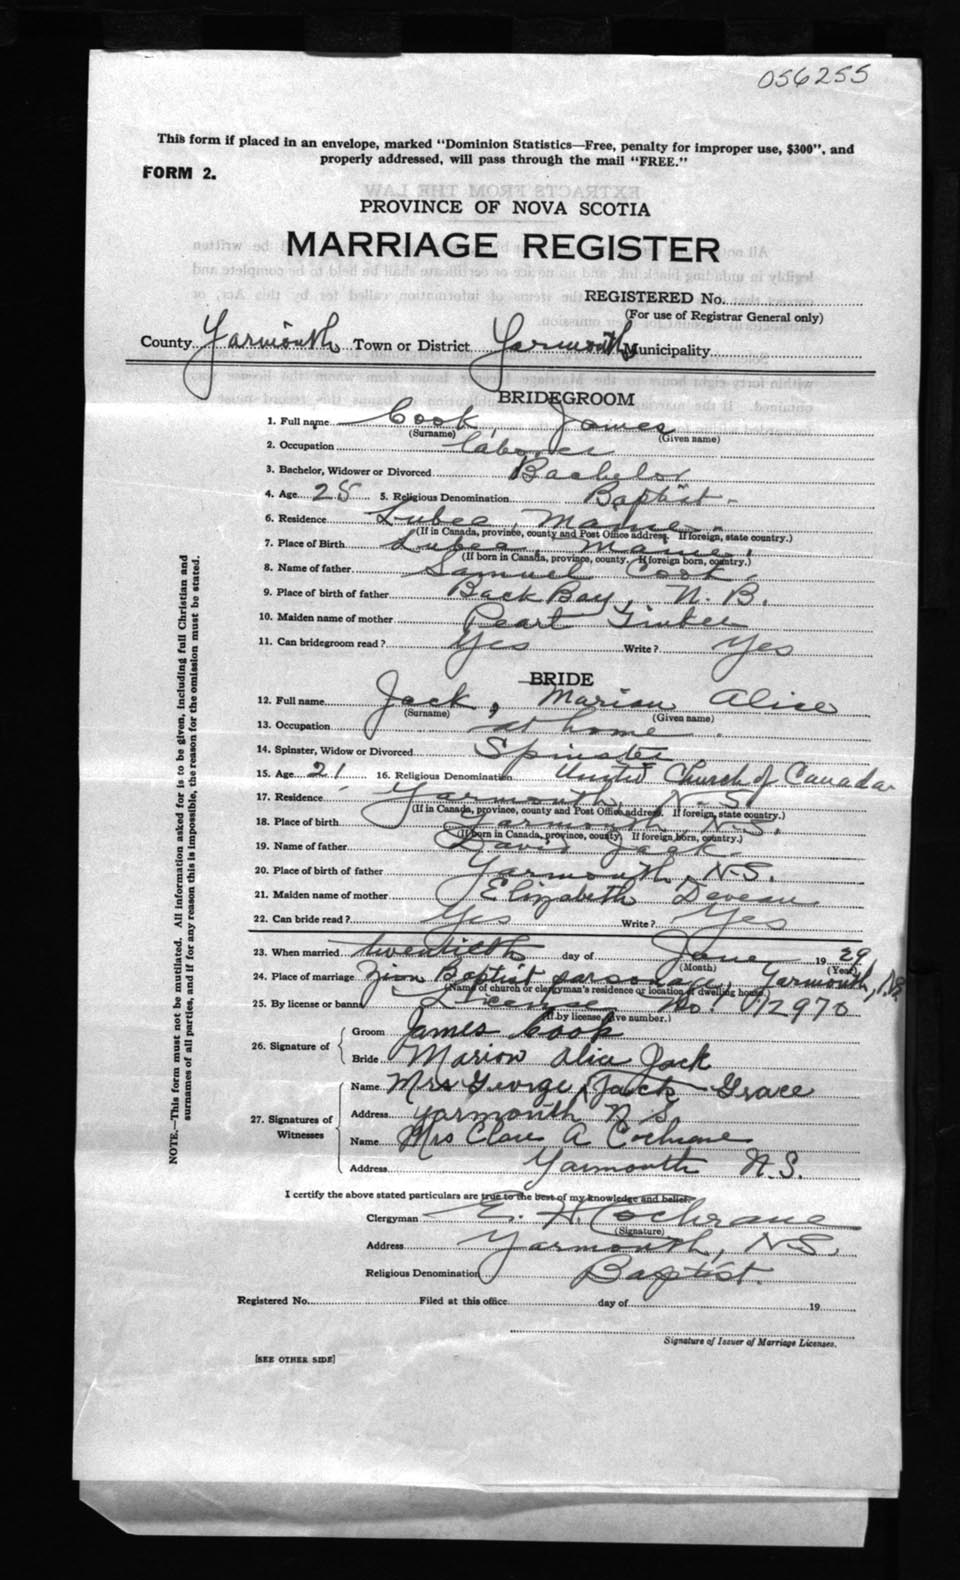 056255
This form if placed in an envelope, marked "Dominion Statistics—Free, penalty for improper use, $300", and
properly addressed, will pass through the mail "FREE."
FORM 2.
PROVINCE OF NOVA SCOTIA
MARRIAGE REGISTER
REGISTERED No.
(For use of Registrar General only)
County Yarmouth Town or District Yarmouth Municipality
BRIDEGROOM
1. Full name Cook, James
(Surname) (Given name)
2. Occupation laborer
3. Bachelor, Widower or Divorced Bachelor
4. Age 25 5. Religious Denomination Baptist -
6. Residence Lubec, Maine.
(If in Canada, province, county and Post Office address. If foreign, state country.)
7. Place of Birth Lubec, Maine.
(If born in Canada, province, county. If foreign born, country.)
8. Name of father Samuel Cook.
9. Place of birth of father Back Bay, N. B.
10. Maiden name of mother Pearl
11. Can bridegroom read? Yes Write? Yes
BRIDE
12. Full name Jack, Marion Alice
(Surname) (Given name)
13. Occupation at home.
14. Spinster, Widow or Divorced Spinster
15. Age 21 16. Religious Denomination United Church of Canada
17. Residence Yarmouth, N.S.
(If in Canada, province, county and Post Office address. If foreign, state country.)
18. Place of birth Yarmouth, N.S.
(If born in Canada, province, county. If foreign born, country.)
19. Name of father David Jack.
20. Place of birth of father Yarmouth, N.S.
21. Maiden name of mother Elizabeth Deveau
22. Can bride read? Yes Write? Yes
23. When married twentieth day of June 1929
(Month) (Year)
24. Place of marriage Zion Baptist parsonage, Yarmouth, N.S.
(Name of church or clergyman's residence or location of dwelling house.)
25. By license or banns License No. 12970
(If by license, give number.)
26. Signature of
Groom James Cook
Bride Marion Alice Jack
27. Signatures of Witnesses
Name Mrs George Jack Grace
Address Yarmouth N.S.
Name Mrs Clare A Cochrane
Address Yarmouth N.S.
I certify the above stated particulars are true to the best of my knowledge and belief.
Clergyman E. H. Cochrane
(Signature)
Address Yarmouth, N.S.
Religious Denomination Baptist.
Registered No. Filed at this office day of 19
Signature of Issuer of Marriage Licenses.
[SEE OTHER SIDE]
NOTE.—This form must not be mutilated. All information asked for is to be given, including full Christian and
surnames of all parties, and if for any reason this is impossible, the reason for the omission must be stated.